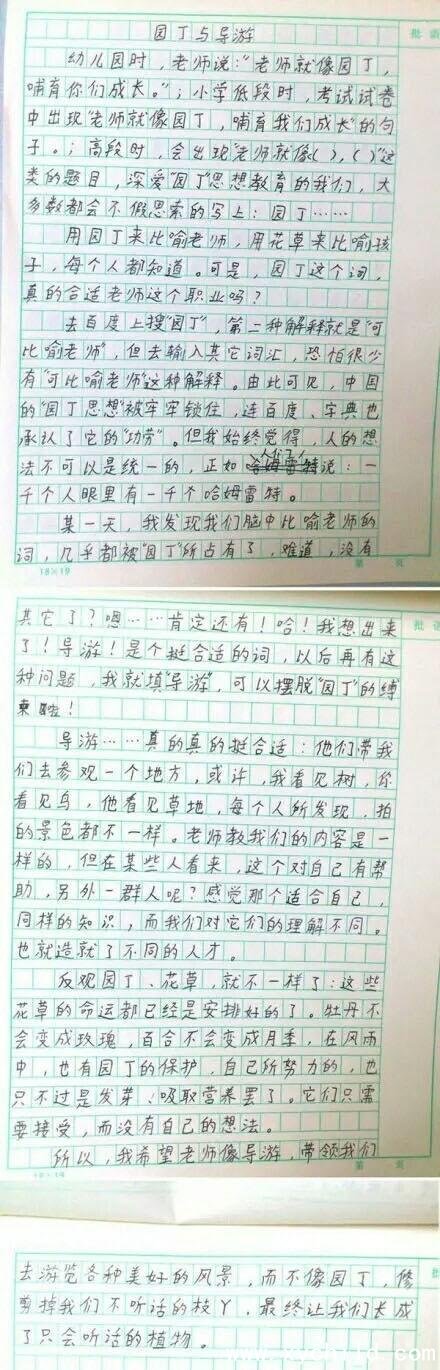 园丁与导游
批语
幼儿园时，老师说：“老师就像园丁，
哺育你们成长。”；小学低段时，考试试卷
中出现“老师就像园丁，哺育我们成长”的句
子。；高段时，会出现“老师就像( )，( )”这
类的题目，深爱“园丁”思想教育的我们，大
多数都会不假思索的写上：园丁……
用园丁来比喻老师，用花草来比喻孩
子，每个人都知道。可是，园丁这个词，
真的合适老师这个职业吗？
去百度上搜“园丁”，第二种解释就是“可
比喻老师”，但去输入其它词汇，恐怕很少
有“可比喻老师”这种解释。由此可见，中国
的“园丁思想”被牢牢锁住，连百度、字典也
承认了它的“功劳”。但我始终觉得，人的想
法不可以是统一的，正如人们说：一
千个人眼里有一千个哈姆雷特。
某一天，我发现我们脑中比喻老师的
词，几乎都被“园丁”所占有了，难道，没有
18×19
第 页
其它了？嗯……肯定还有！哈！我想出来
批语
了！导游！是个挺合适的词，以后再有这
种问题，我就填“导游”，可以摆脱“园丁”的缚
束啦！
导游……真的真的挺合适：他们带我
们去参观一个地方，或许，我看见树，你
看见鸟，他看见草地，每个人所发现、拍
的景色都不一样。老师教我们的内容是一
样的，但在某些人看来，这个对自己有帮
助，另外一群人呢？感觉那个适合自己，
同样的知识，而我们对它们的理解不同。
也就造就了不同的人才。
反观园丁、花草，就不一样了：这些
花草的命运都已经是安排好的了。牡丹不
会变成玫瑰，百合不会变成月季，在风雨
中，也有园丁的保护，自己所努力的，也
只不过是发芽、吸取营养罢了。它们只需
要接受，而没有自己的想法。
所以，我希望老师像导游，带领我们
第 页
去游览各种美好的风景，而不像园丁，修
剪掉我们不听话的枝丫，最终让我们长成
了只会听话的植物。